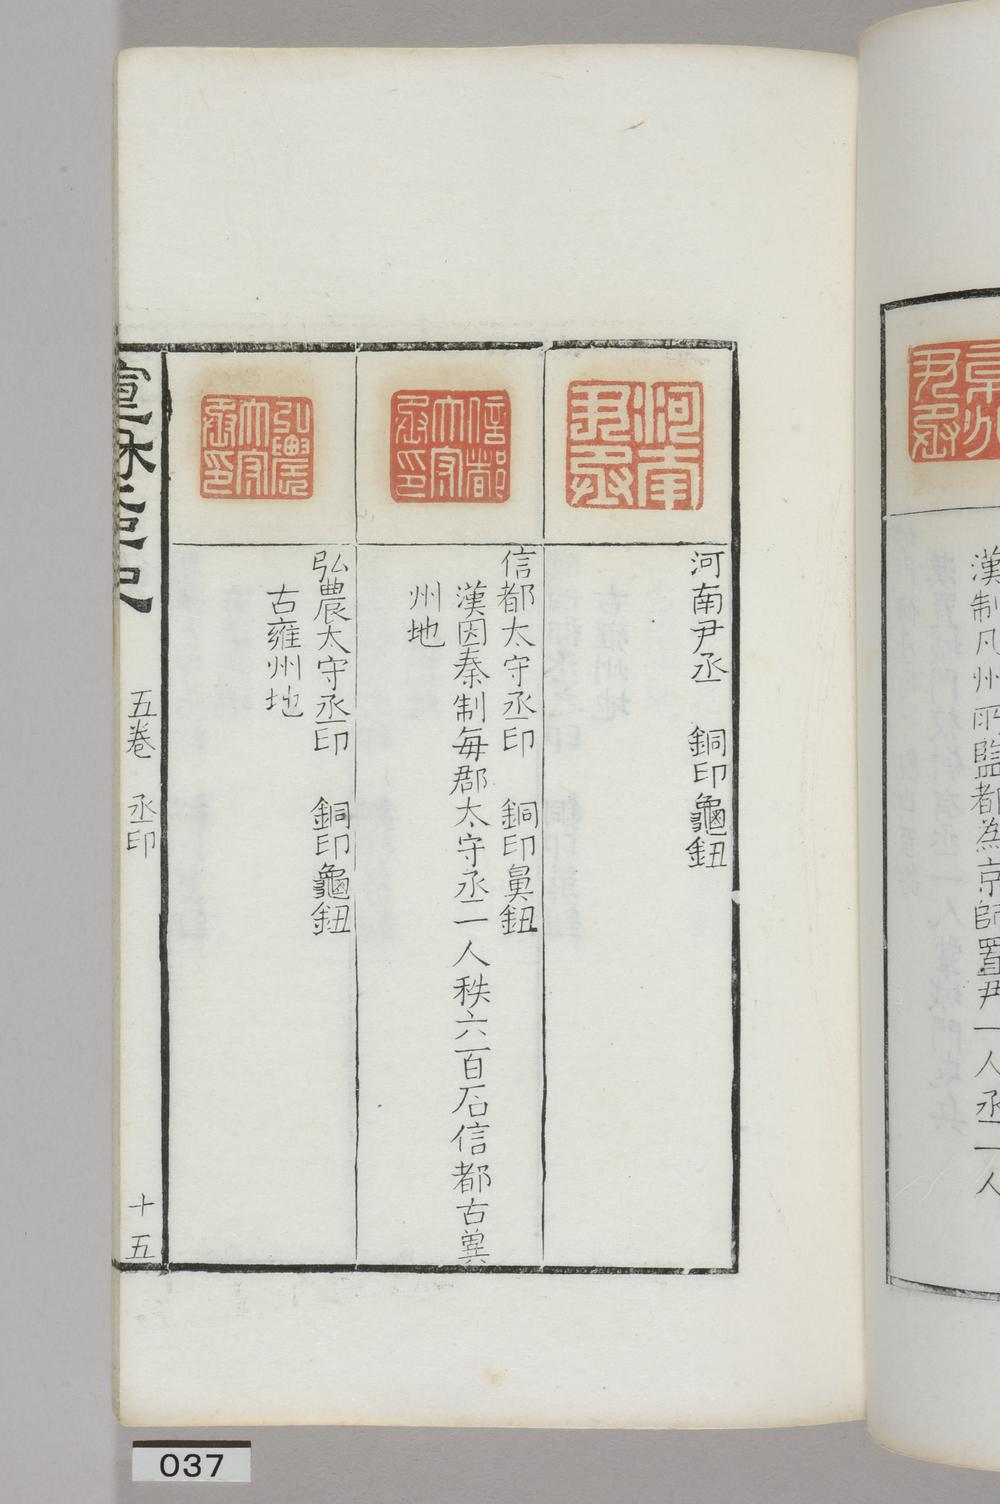 漢制凡州所監都為京師置尹一人丞一人
河南尹丞
河南尹丞　銅印龜鈕
信都太守丞印
信都太守丞印　銅印鼻鈕
漢因秦制每郡太守丞一人秩六百石信都古冀
州地
弘農太守丞印
弘農太守丞印　銅印龜鈕
古雍州地
五卷　丞印
十五
037